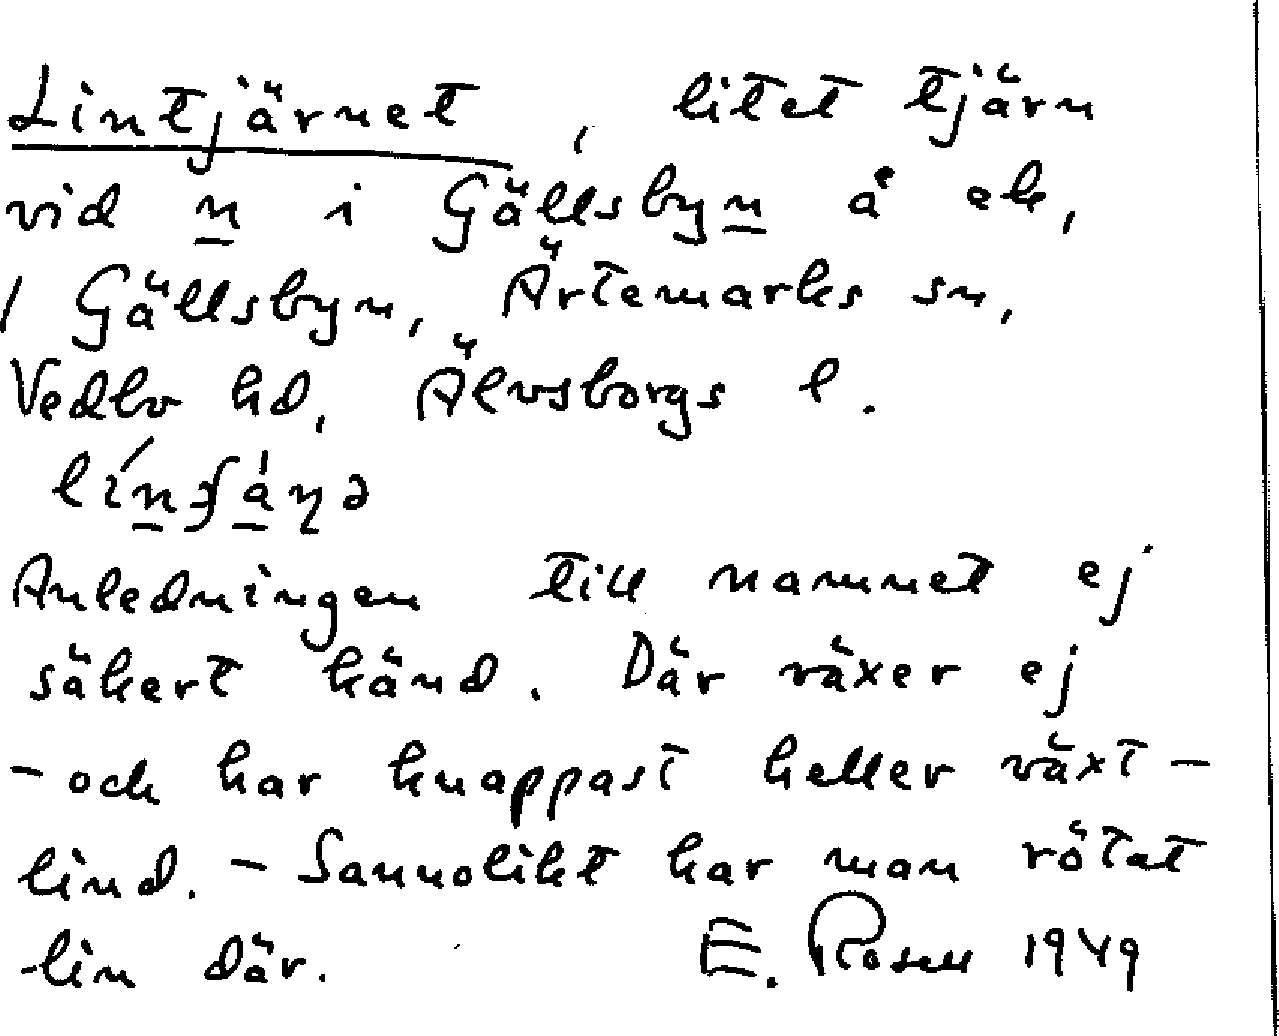 Lintjärnet, litet tjärn
vid n i Gällsbyn å ek,
1 Gällsbyn, Ärtemarks sn,
Vedbo hd, Älvsborgs l.
Anledningen till namnet ej
säkert känd. Där växer ej
- och har knappast heller växt -
lind. - Sannolikt har man rötat
lin där. E. Rosell 1949